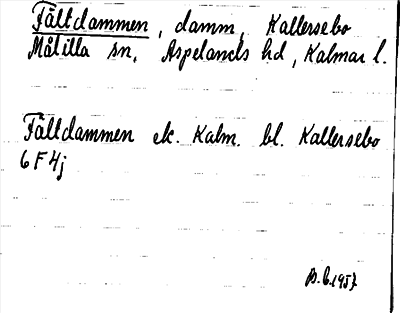 Fältdammen, damm, Kallersebo
Målilla sn, Aspelands hd, Kalmar l.
Fältdammen ek. Kalm. bl. Kallersebo
6 F 4j
B.G. 1957